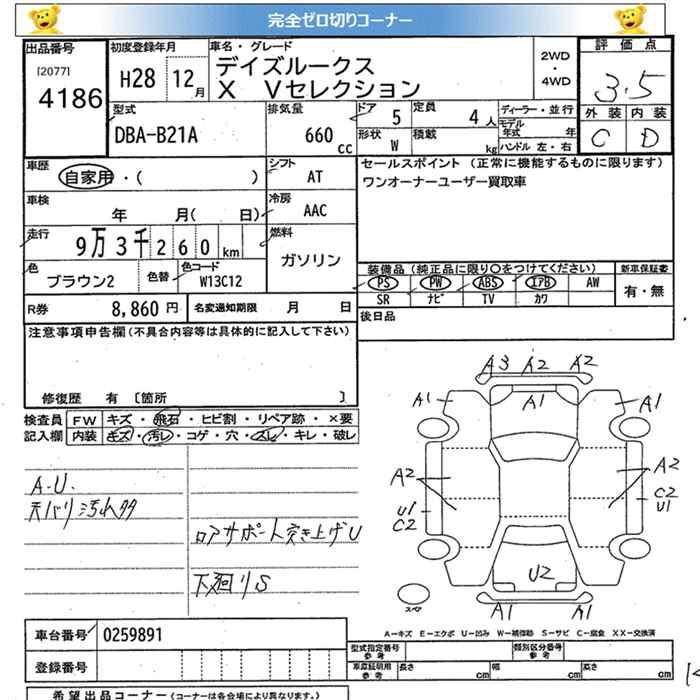 完全ゼロ切りコーナー
出品番号
[2077]
4186
初度登録年月
H28 12月
車名・グレード
デイズルークス
X Vセレクション
2WD
4WD
評価点
3.5
外装 内装
C D
型式
DBA-B21A
排気量
660 cc
ドア 5
定員 4人
形状 W
積載 kg
ディーラー・並行
モデル年式 年
ハンドル 左・右
車歴
自家用・( )
シフト
AT
セールスポイント (正常に機能するものに限ります)
ワンオーナーユーザー買取車
車検
年 月( 日)
冷房
AAC
走行
9万3千260km
燃料
ガソリン
色
ブラウン2
色替
色コード
W13C12
装備品(純正品に限り○をつけてください)
新車保証書
PS PW ABS エアB AW
有・無
SR ナビ TV カワ
R券
8,860円
名変通知期限 月 日
後日品
注意事項申告欄(不具合内容等は具体的に記入して下さい)
修復歴 有 [箇所 ]
検査員記入欄
FW キズ・飛石・ヒビ割・リペア跡・×要
内装 キズ・汚レ・コゲ・穴・スレ・キレ・破レ
A.U.
天バリ汚れ多
ロアサポート突き上げU
下廻りS
A3 A2 A2
A1 A1 A1
A2 A2
U1 C2
C2 U1
U2
A1 A1
スペア
A-キズ E-エクボ U-凹み W-補修跡 S-サビ C-腐食 XX-交換済
車台番号
0259891
登録番号
型式指定番号 参考
類別区分番号 参考
車庫証明用 参考
長さ cm
幅 cm
高さ cm
希望出品コーナー(コーナーは各会場により異なります。)